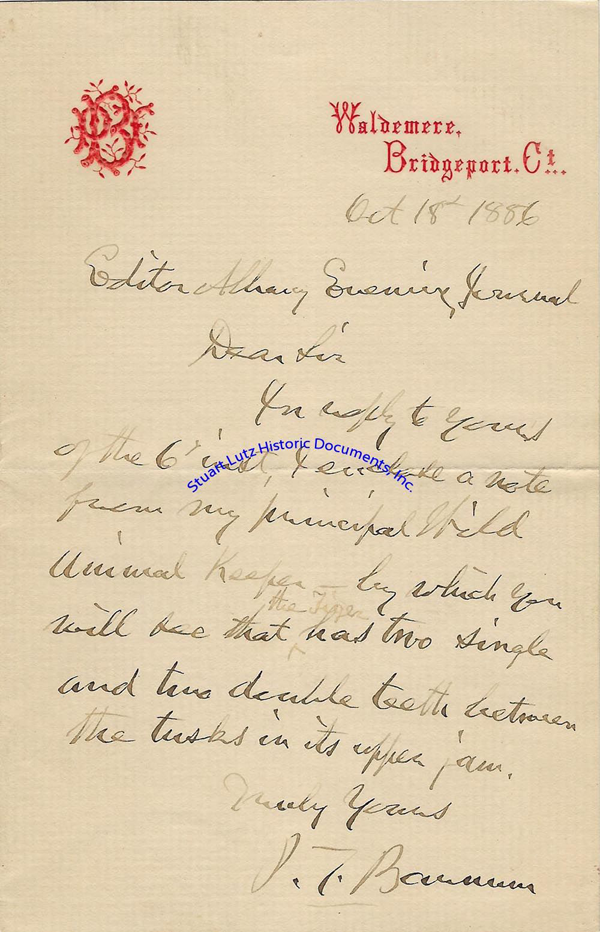 PTB
Waldemere,
Bridgeport. Ct..
Oct 18th 1886
Editor Albany Evening Journal
Dear Sir
In reply to Yours
of the 6th inst, I enclose a note
Stuart Lutz Historic Documents, Inc.
from my principal Wild
Animal Keeper — by which you
the Tiger
will see that ^ has two single
and two double teeth between
the tusks in its upper jaw.
Truly Yours
P. T. Barnum